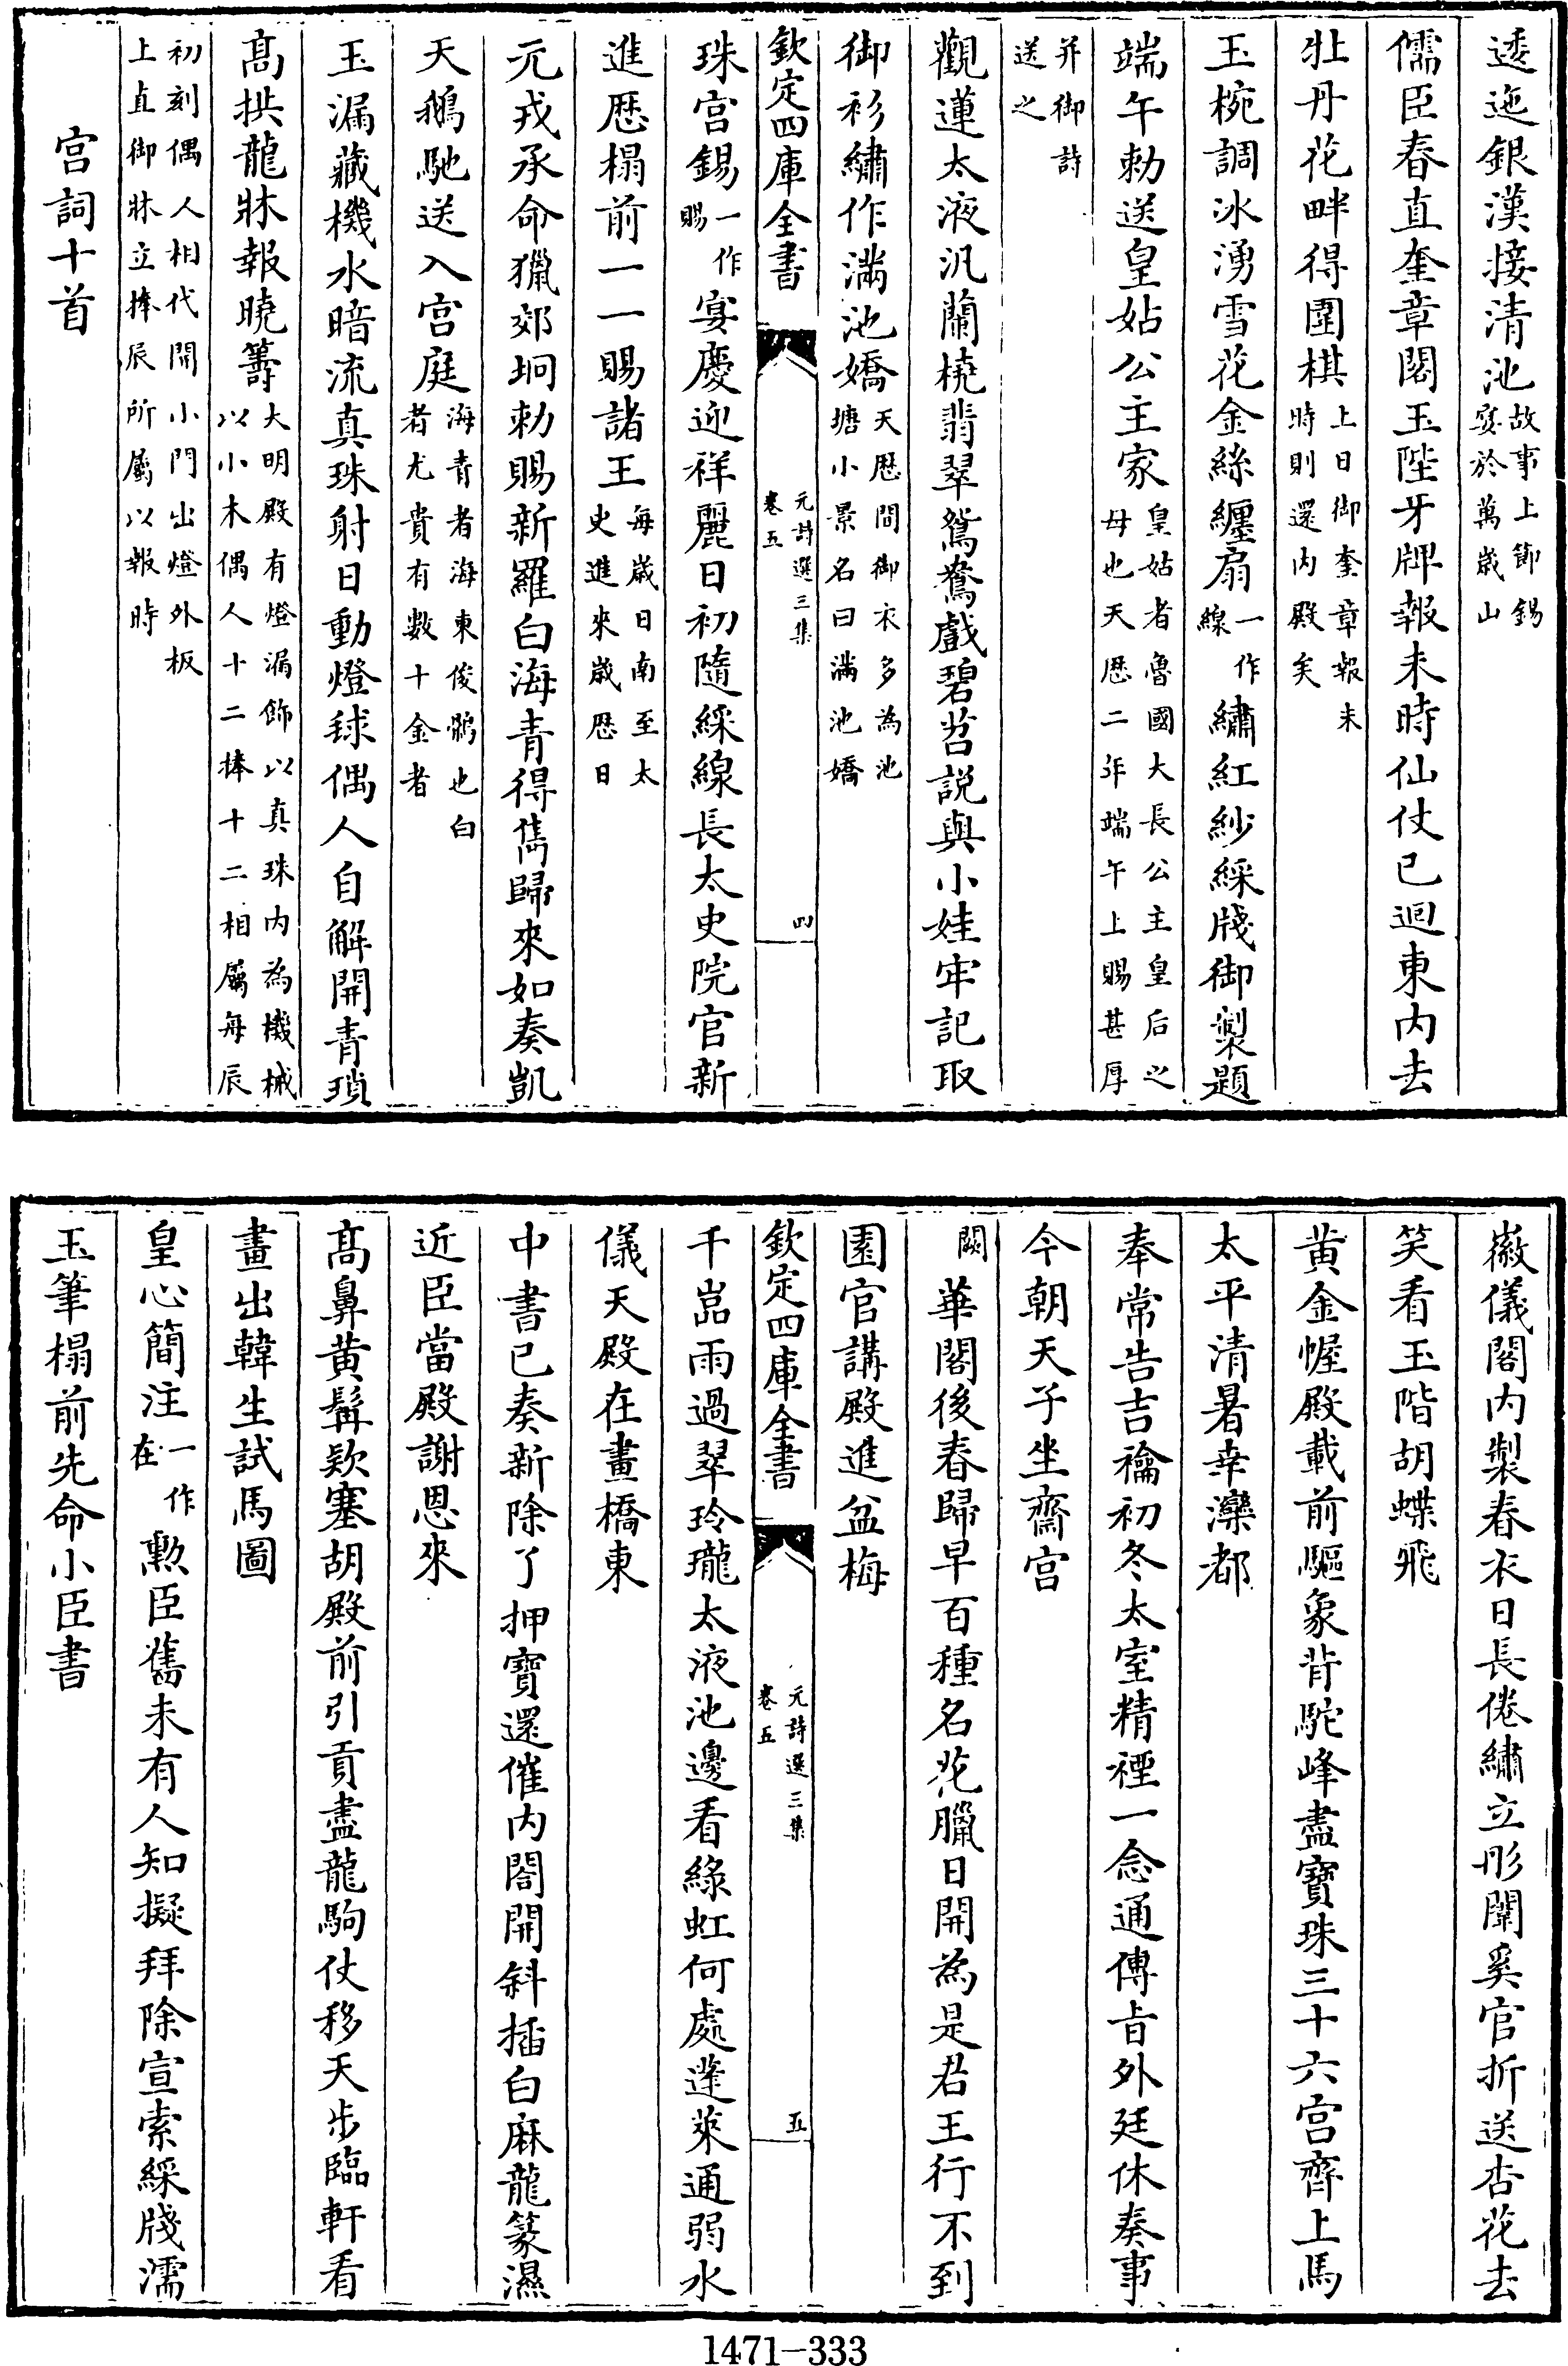 逶迤銀漢接清池故事上節錫
宴於萬嵗山
儒臣春直奎章閣玉陛牙牌報未時仙仗已迴東内去
牡丹花畔得圍棋上日御奎章報未
時則還内殿矣
玉椀調冰湧雪花金絲纏扇一作
線繡紅紗綵牋御製題
端午勅送皇姑公主家皇姑者魯國大長公主皇后之
母也天歴二年端午上賜甚厚
并御詩
送之
觀蓮太液汎蘭橈翡翠鴛鴦戲碧苕說與小娃牢記取
御衫繡作滿池嬌天歴間御衣多為池
塘小景名曰滿池嬌
欽定四庫全書
元詩選三集
卷五
四
珠宫錫一作
賜宴慶迎祥麗日初隨綵線長太史院官新
進歴榻前一一賜諸王每嵗日南至太
史進來嵗歴日
元戎承命獵郊坰勅賜新羅白海青得雋歸來如奏凱
天鵝馳送入宫庭海青者海東俊鶻也白
者尤貴有數十金者
玉漏藏機水暗流真珠射日動燈毬偶人自解開青瑣
髙拱龍牀報曉籌大明殿有燈漏飾以真珠内為機械
以小木偶人十二捧十二相屬每辰
初刻偶人相代開小門出燈外板
上直御牀立捧辰所屬以報時
宫詞十首
徽儀閣内製春衣日長倦繡立彤闈奚官折送杏花去
笑看玉階胡蝶飛
黄金幄殿載前驅象背駝峰盡寳珠三十六宫齊上馬
太平清暑幸灤都
奉常告吉禴初冬太室精禋一念通傳旨外廷休奏事
今朝天子坐齋宫
闕華閣後春歸早百種名花臘日開為是君王行不到
園官講殿進盆梅
欽定四庫全書
元詩選三集
卷五
五
千嵓雨過翠玲瓏太液池邊看綠虹何處蓬萊通弱水
儀天殿在畫橋東
中書已奏新除了押寳還催内閤開斜插白麻龍篆濕
近臣當殿謝恩來
髙鼻黄髯欵塞胡殿前引貢盡龍駒仗移天步臨軒看
畫出韓生試馬圖
皇心簡注一作
在勲臣舊未有人知擬拜除宣索綵牋濡
玉筆榻前先命小臣書
1471-333